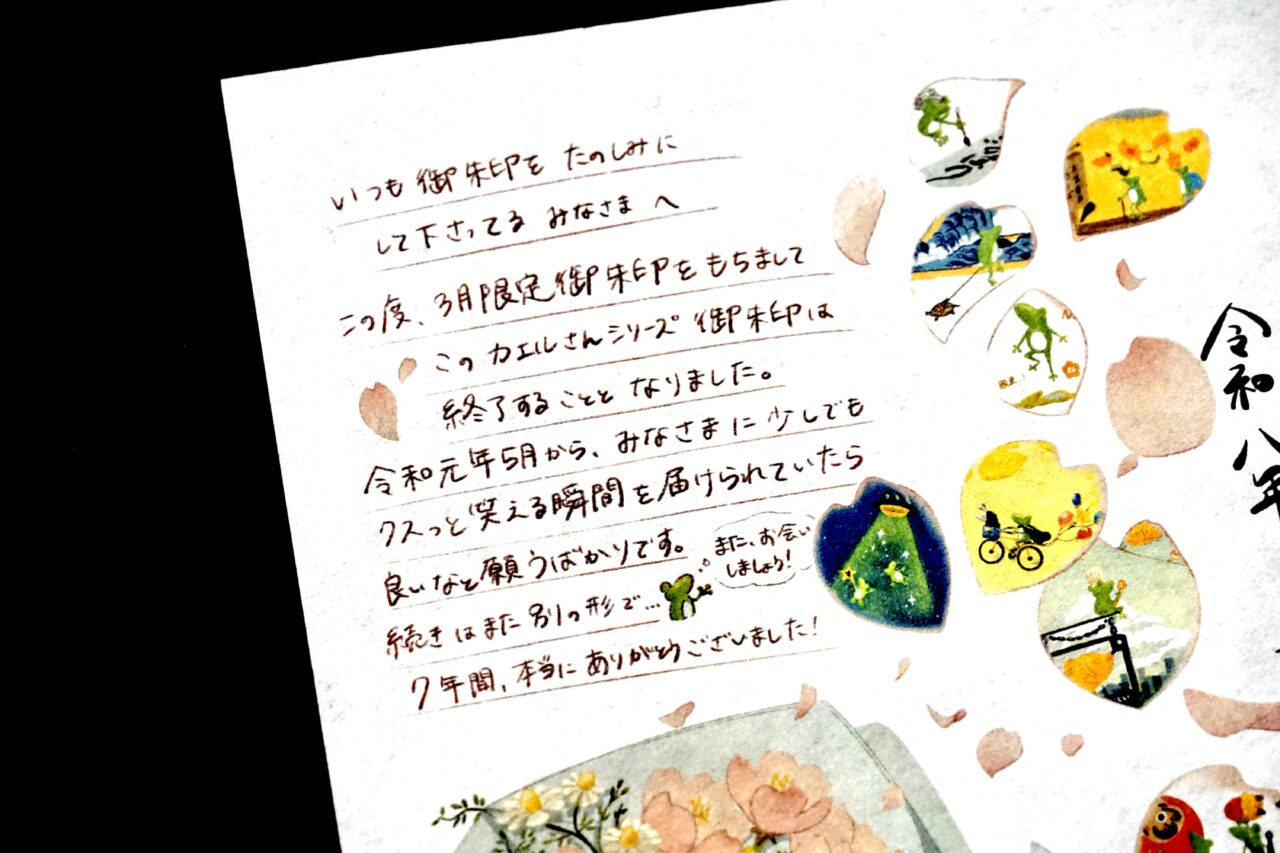 いつも御朱印をたのしみに
して下さってるみなさまへ
この度、3月限定御朱印をもちまして
このカエルさんシリーズ御朱印は
終了することとなりました。
令和元年5月から、みなさまに少しでも
クスっと笑える瞬間を届けられていたら
良いなと願うばかりです。
続きはまた別の形で…
また、お会い
しましょう!
7年間、本当にありがとうございました!
令和八年